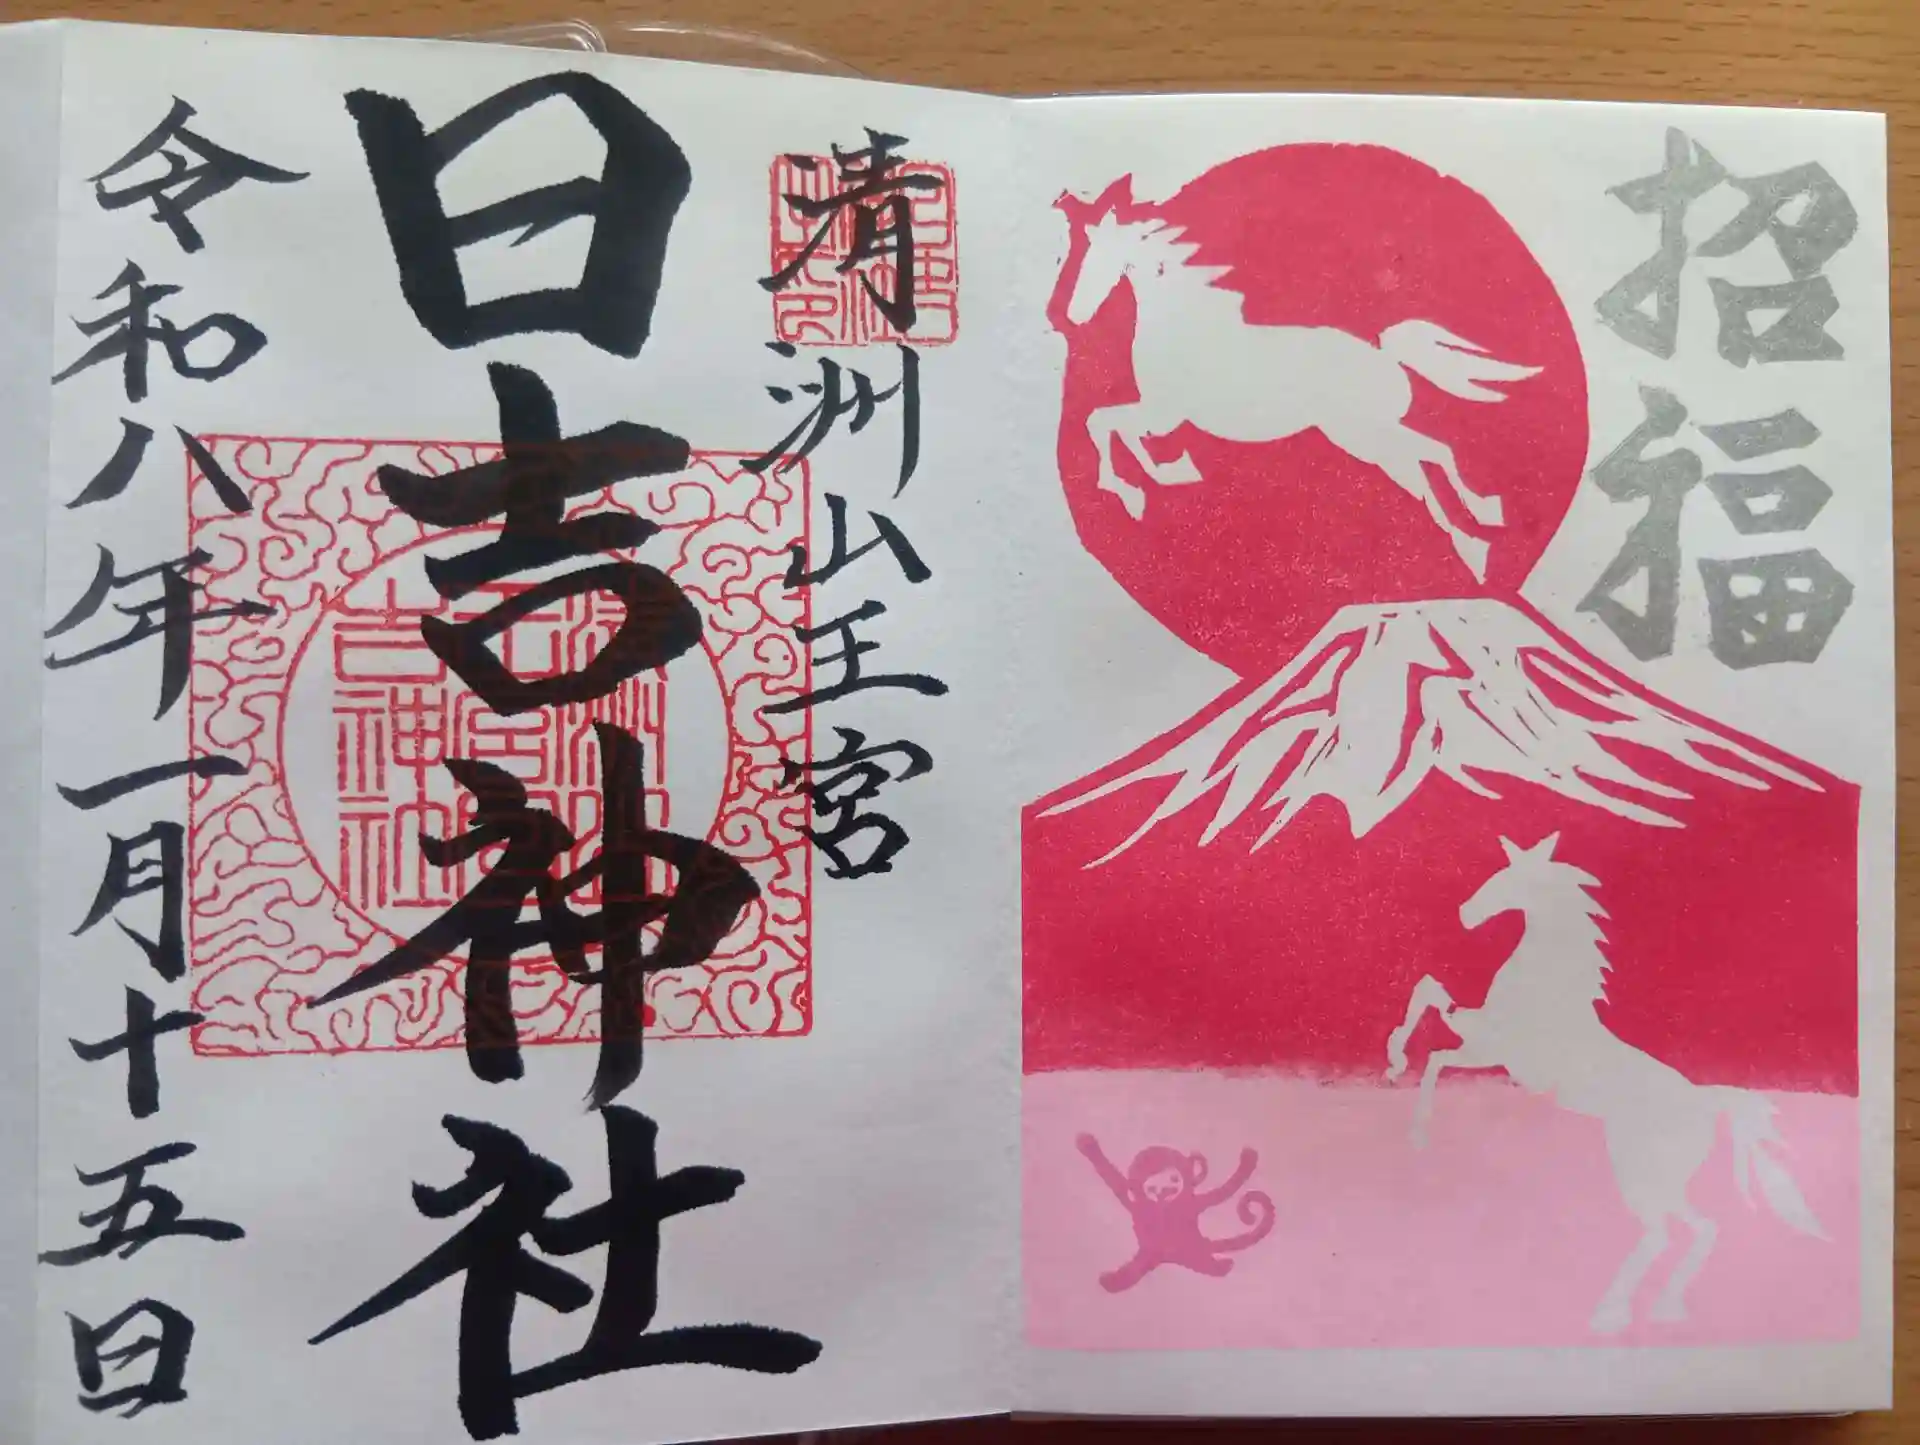 招福
清洲山王宮
日吉神社
令和八年一月十五日